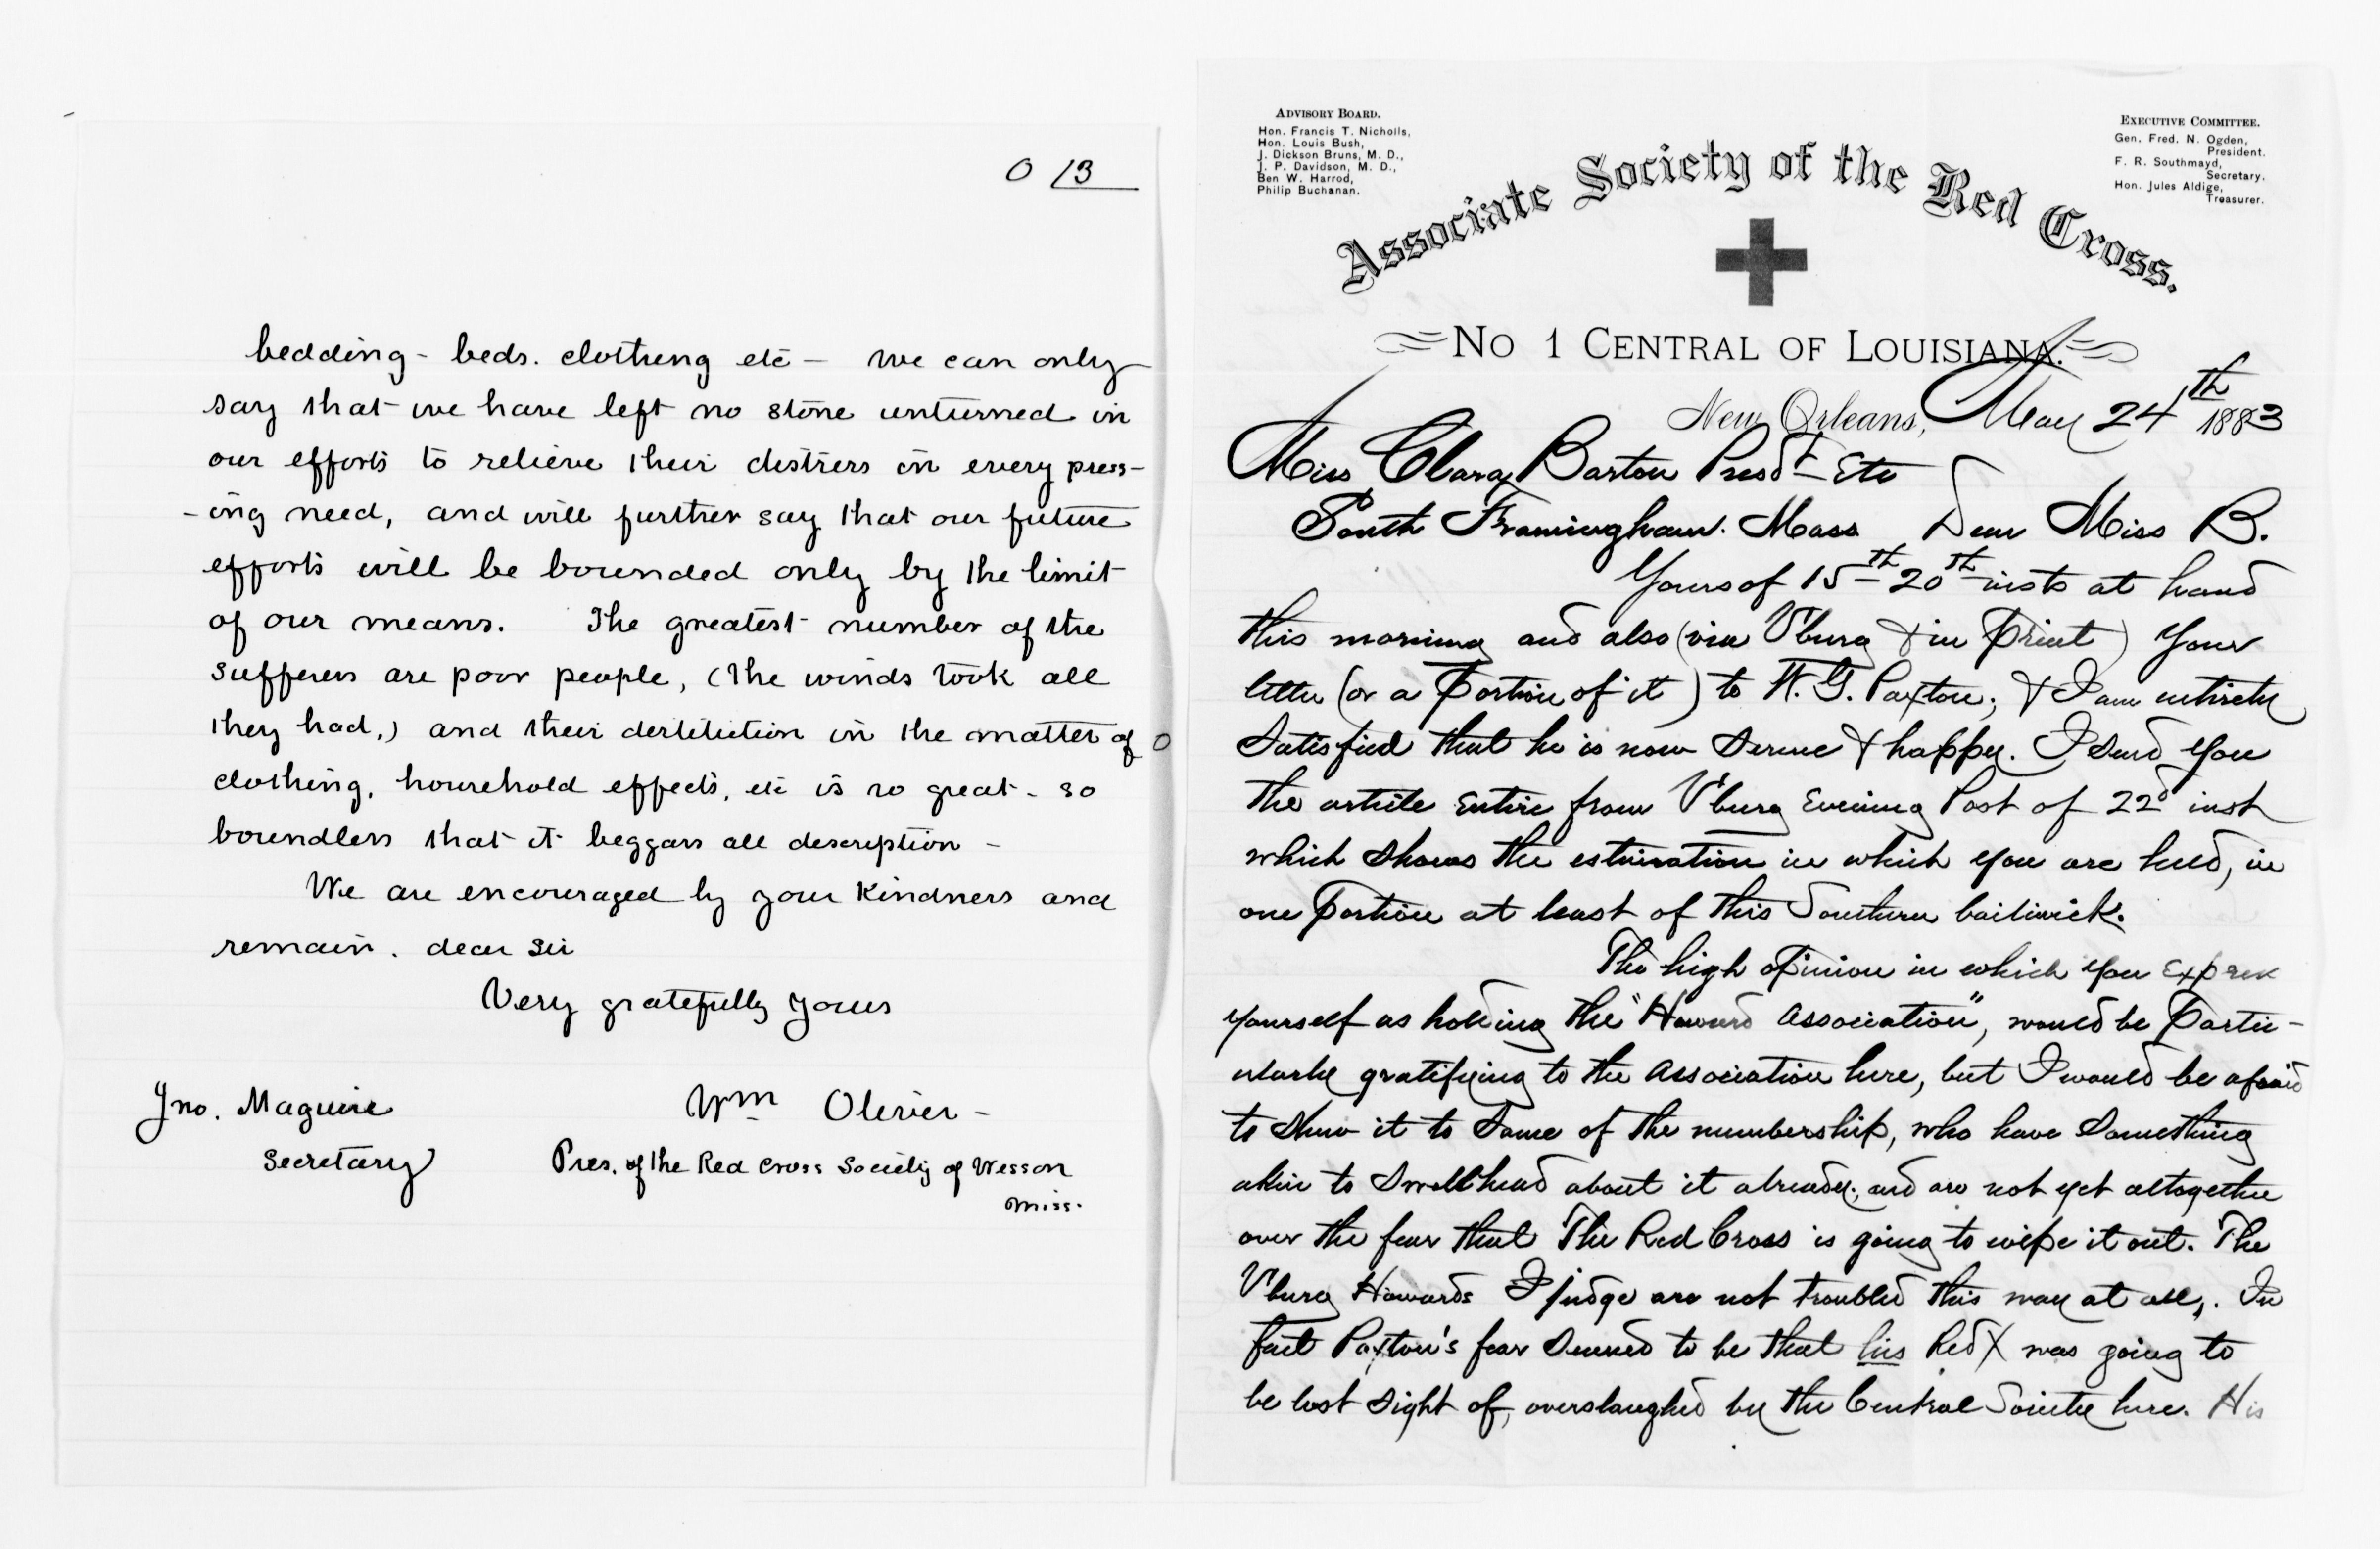 0 /3
bedding - beds. clothing etc — we can only
say that we have left no stone unturned in
our efforts to relieve their distress in every press-
-ing need, and will further say that our future
efforts will be bounded only by the limit
of our means. The greatest number of the
sufferers are poor people, (the winds took all
they had,) and their destitution in the matter of
clothing, household effects, etc is so great - so
boundless that it beggars all description -
We are encouraged by your kindness and
remain. dear Sir
Very gratefully yours
Jno. Maguire
Secretary
Wm Oliver -
Pres. of the Red Cross Society of Wesson
Miss.
ADVISORY BOARD.
Hon. Francis T. Nicholls,
Hon. Louis Bush,
J. Dickson Bruns, M. D.,
J. P. Davidson, M. D.,
Ben W. Harrod,
Philip Buchanan.
EXECUTIVE COMMITTEE.
Gen. Fred. N. Ogden,
President.
F. R. Southmayd,
Secretary.
Hon. Jules Aldige,
Treasurer.
Associate Society of the Red Cross.
No 1 CENTRAL OF LOUISIANA.
New Orleans, May 24th 1883
Miss Clara Barton Presdt Etc
South Framingham. Mass Dear Miss B.
Yours of 15th 20th insts at hand
this morning and also (via V'burg & in Print) Your
letter (or a Portion of it) to W. G. Paxton; & I am entirely
Satisfied that he is now Serene & happy. I Send You
the article Entire from V'burg Evening Post of 22d inst
which Shows the estimation in which you are held, in
one Portion at least of this Southern bailiwick.
The high opinion in which you Express
yourself as holding the "Howard Association", would be Partic-
ularly gratifying to the Association here, but I would be afraid
to Show it to Some of the membership, who have Something
akin to Swellhead about it already; and are not yet altogether
over the fear that The Red Cross is going to wipe it out. The
V'burg Howards I judge are not troubled this way at all,. In
fact Paxton's fear Seemed to be that his Red X was going to
be lost Sight of, overslaughed by the Central Society here. His